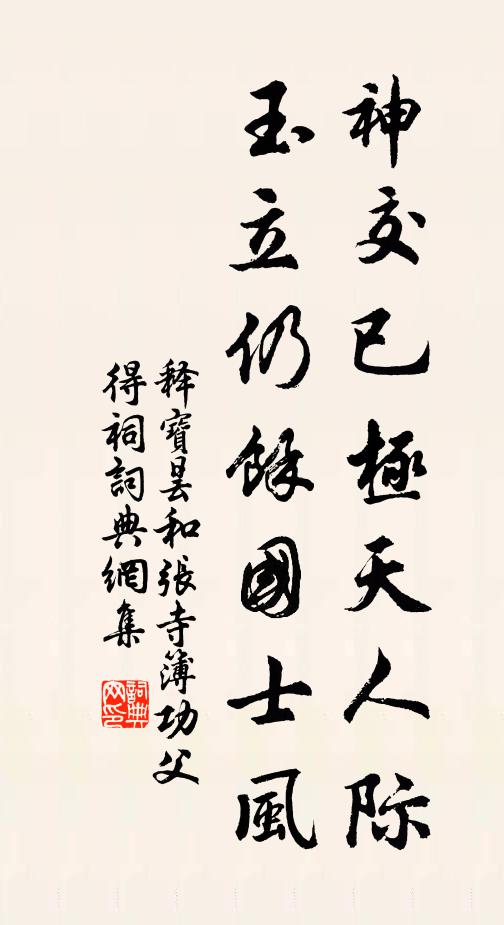 神交已極天人际
玉立仍餘國士風
释寶曇和張寺簿功父
得祠詞典網集
詞典网印